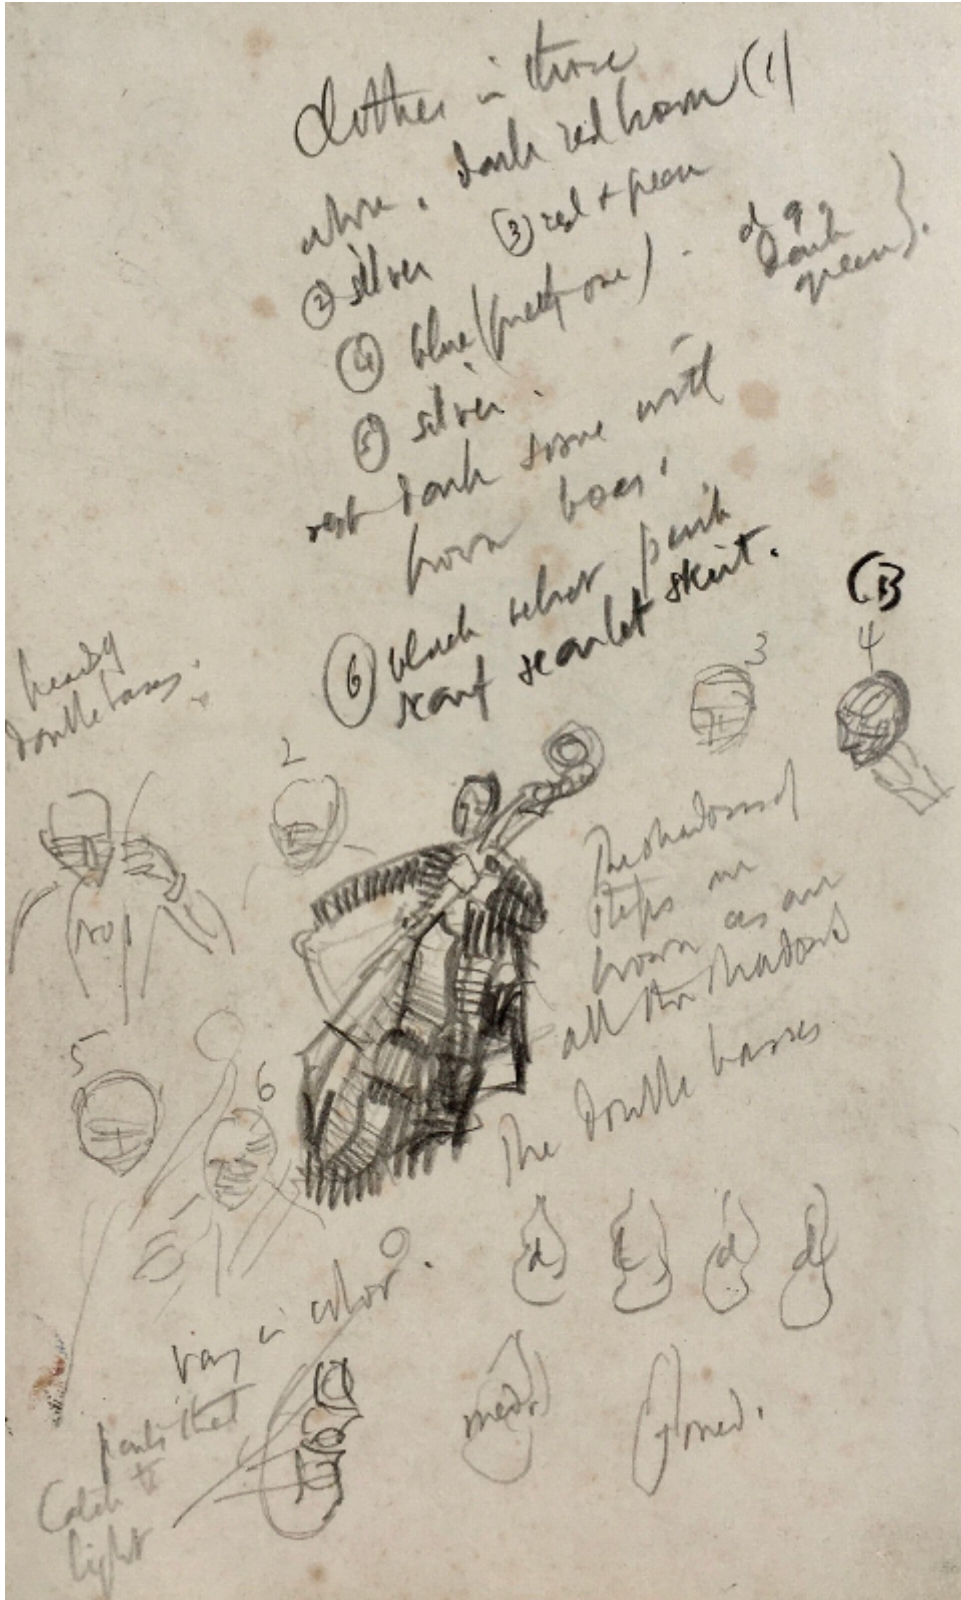 clothes in those
above. dark red brown (1)
② silver ③ red + green
④ blue ( one) - dark
green}.
⑤ silver.
rest dark some with
brown boas.
⑥ black velvet pink
scarf scarlet skirt.
B
heads
double basses.
2
3
4
The shadows of
steps are
brown as are
all the shadows
5
6
The double basses
d
d
d
vary in color.
med.
med.
parts that
Catch the
light